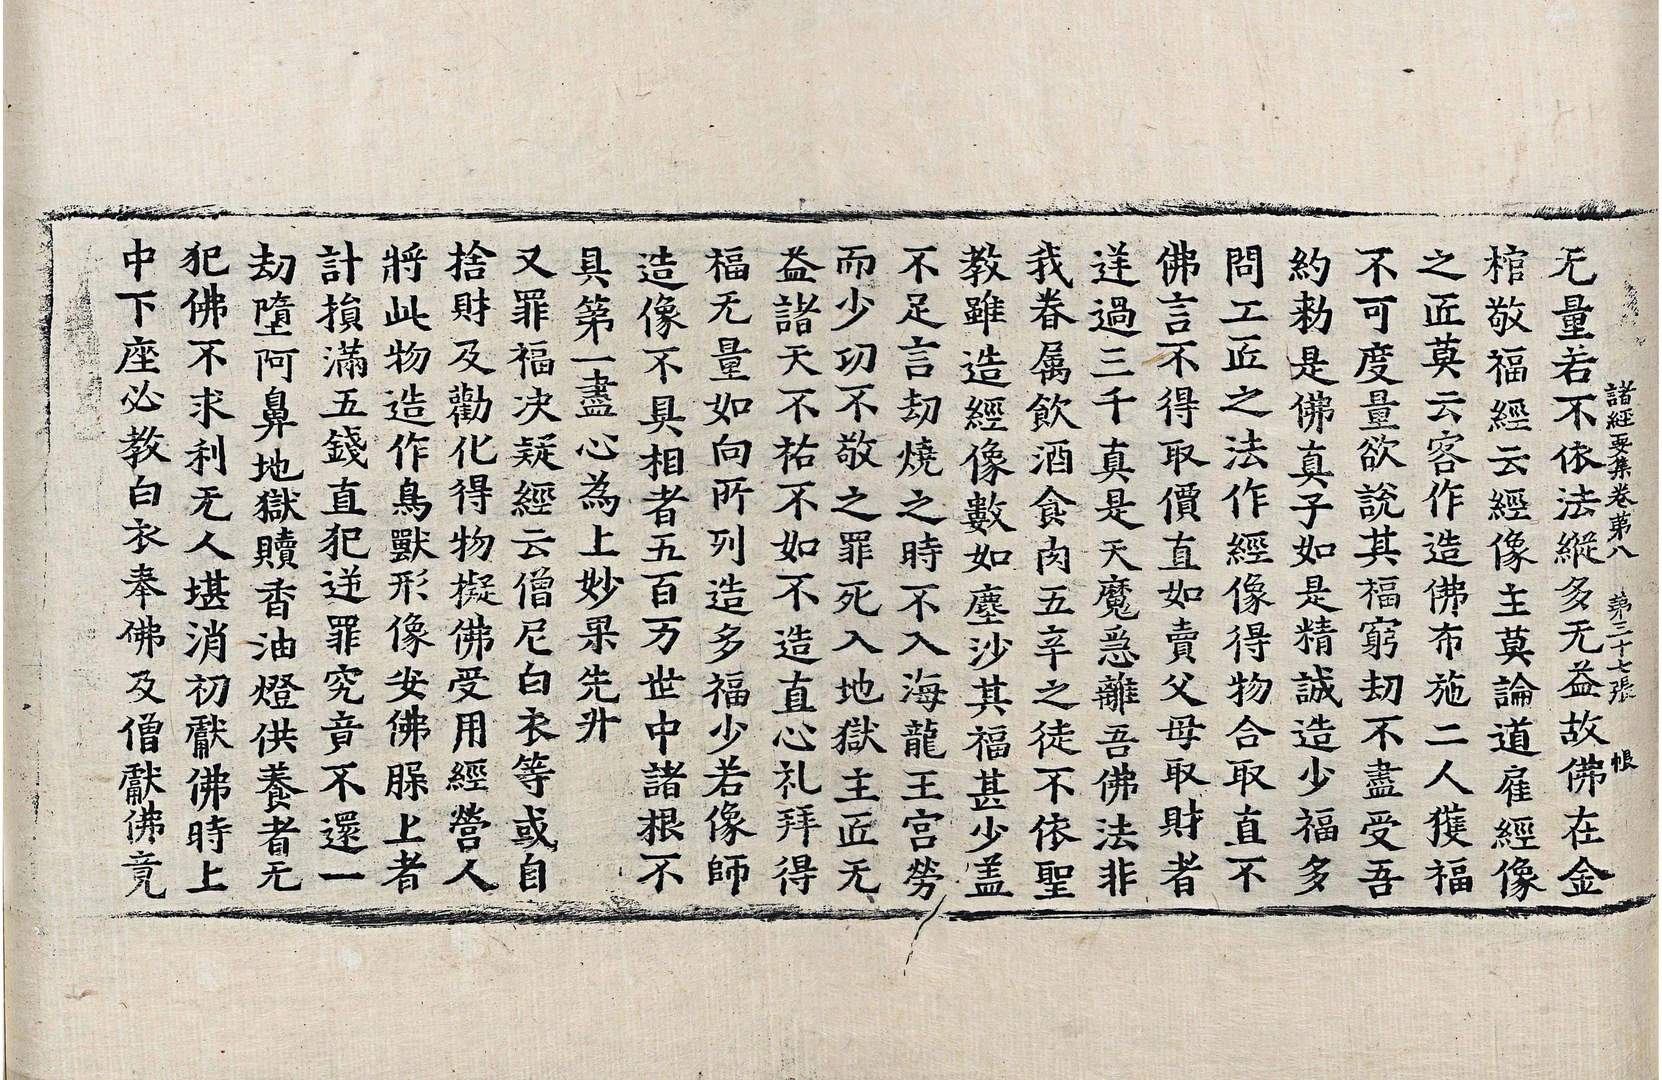 諸經要集卷第八 第三十七張 帳
无量若不依法縱多无益故佛在金
棺敬福經云經像主莫論道雇經像
之匠莫云客作造佛布施二人獲福
不可度量欲說其福窮劫不盡受吾
約勑是佛真子如是精誠造少福多
問工匠之法作經像得物合取直不
佛言不得取價直如賣父母取財者
逆過三千真是天魔急離吾佛法非
我眷属飲酒食肉五辛之徒不依聖
教雖造經像數如塵沙其福甚少盖
不足言劫燒之時不入海龍王宫勞
而少功不敬之罪死入地獄主匠无
益諸天不祐不如不造直心礼拜得
福无量如向所列造多福少若像師
造像不具相者五百万世中諸根不
具第一盡心為上妙果先升
又罪福决疑經云僧尼白衣等或自
捨財及勸化得物擬佛受用經營人
將此物造作鳥獸形像安佛腂上者
計損滿五錢直犯逆罪究竟不還一
劫墮阿鼻地獄贖香油燈供養者无
犯佛不求利无人堪消初獻佛時上
中下座必教白衣奉佛及僧獻佛竟